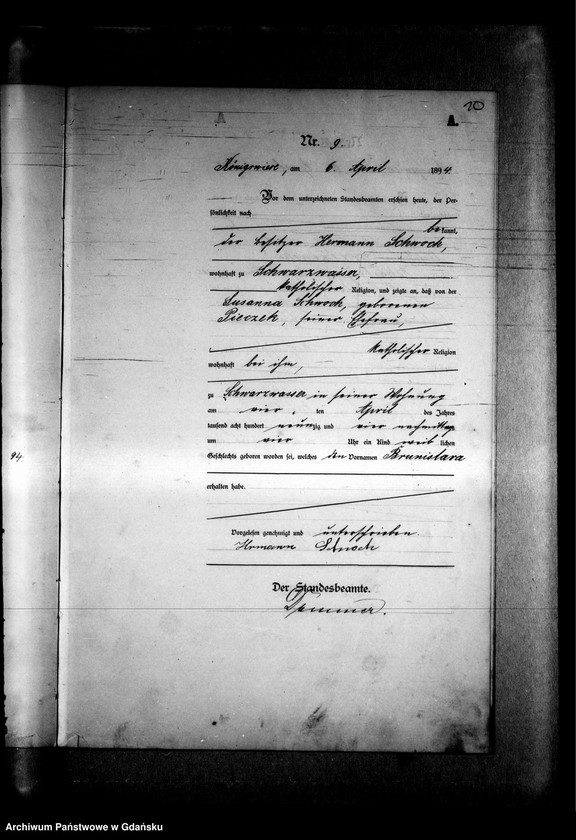 10
A.
Nr. 9.
Königswiese, am 6. April 1894.
Vor dem unterzeichneten Standesbeamten erschien heute, der Per-
sönlichkeit nach
bekannt,
der Besitzer Hermann Schwoch,
wohnhaft zu Schwarzwasser,
katholischer Religion, und zeigte an, daß von der
Susanna Schwoch, geborenen
Pieczek, seiner Ehefrau,
katholischer Religion
wohnhaft bei ihm,
zu Schwarzwasser in seiner Wohnung
am vier ten April des Jahres
tausend acht hundert neunzig und vier nachmittag
um vier Uhr ein Kind weiblichen
Geschlechts geboren worden sei, welches den Vornamen Brunislava
erhalten habe.
Vorgelesen genehmigt und unterschrieben
Hermann Schwoch
Der Standesbeamte.
94.
Archiwum Państwowe w Gdańsku